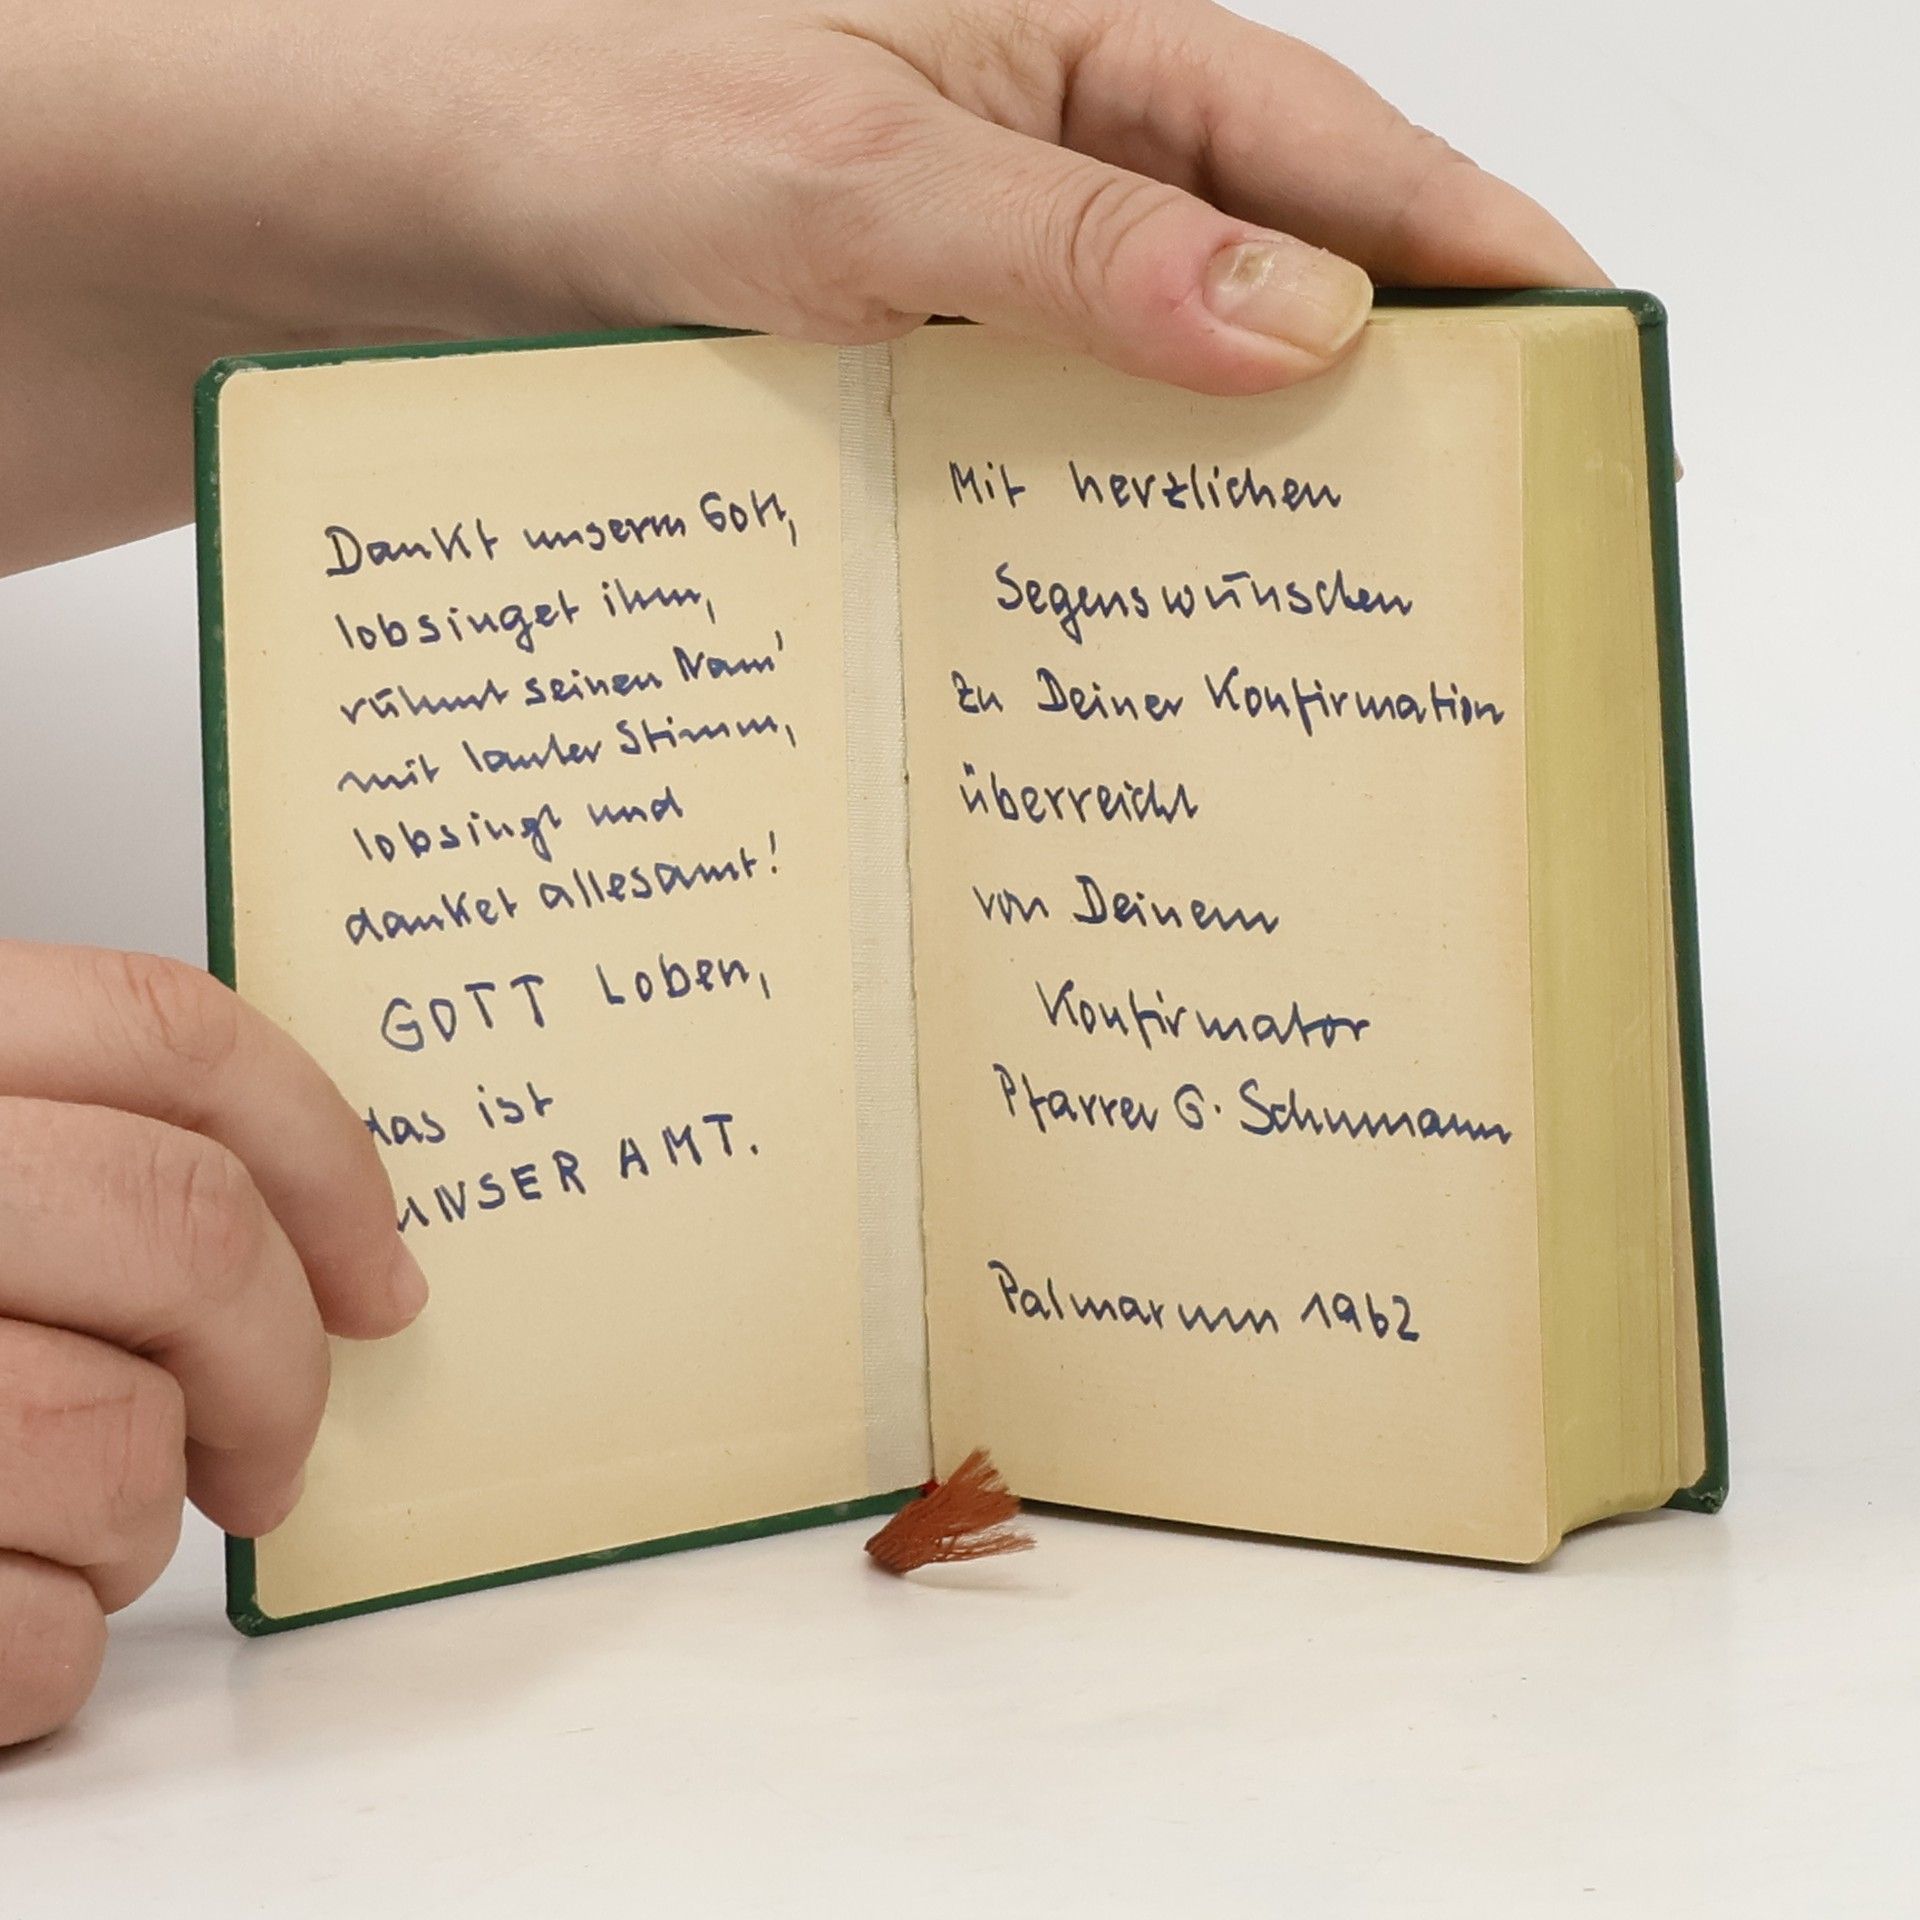 Dankt unserm Gott,
lobsinget ihm,
rühmt seinen Nam'
mit lauter Stimm,
lobsingt und
danket allesamt!
GOTT Loben,
das ist
UNSER AMT.
Mit herzlichen
Segenswünschen
zu Deiner Konfirmation
überreicht
von Deinem
Konfirmator
Pfarrer G. Schumann
Palmarum 1962